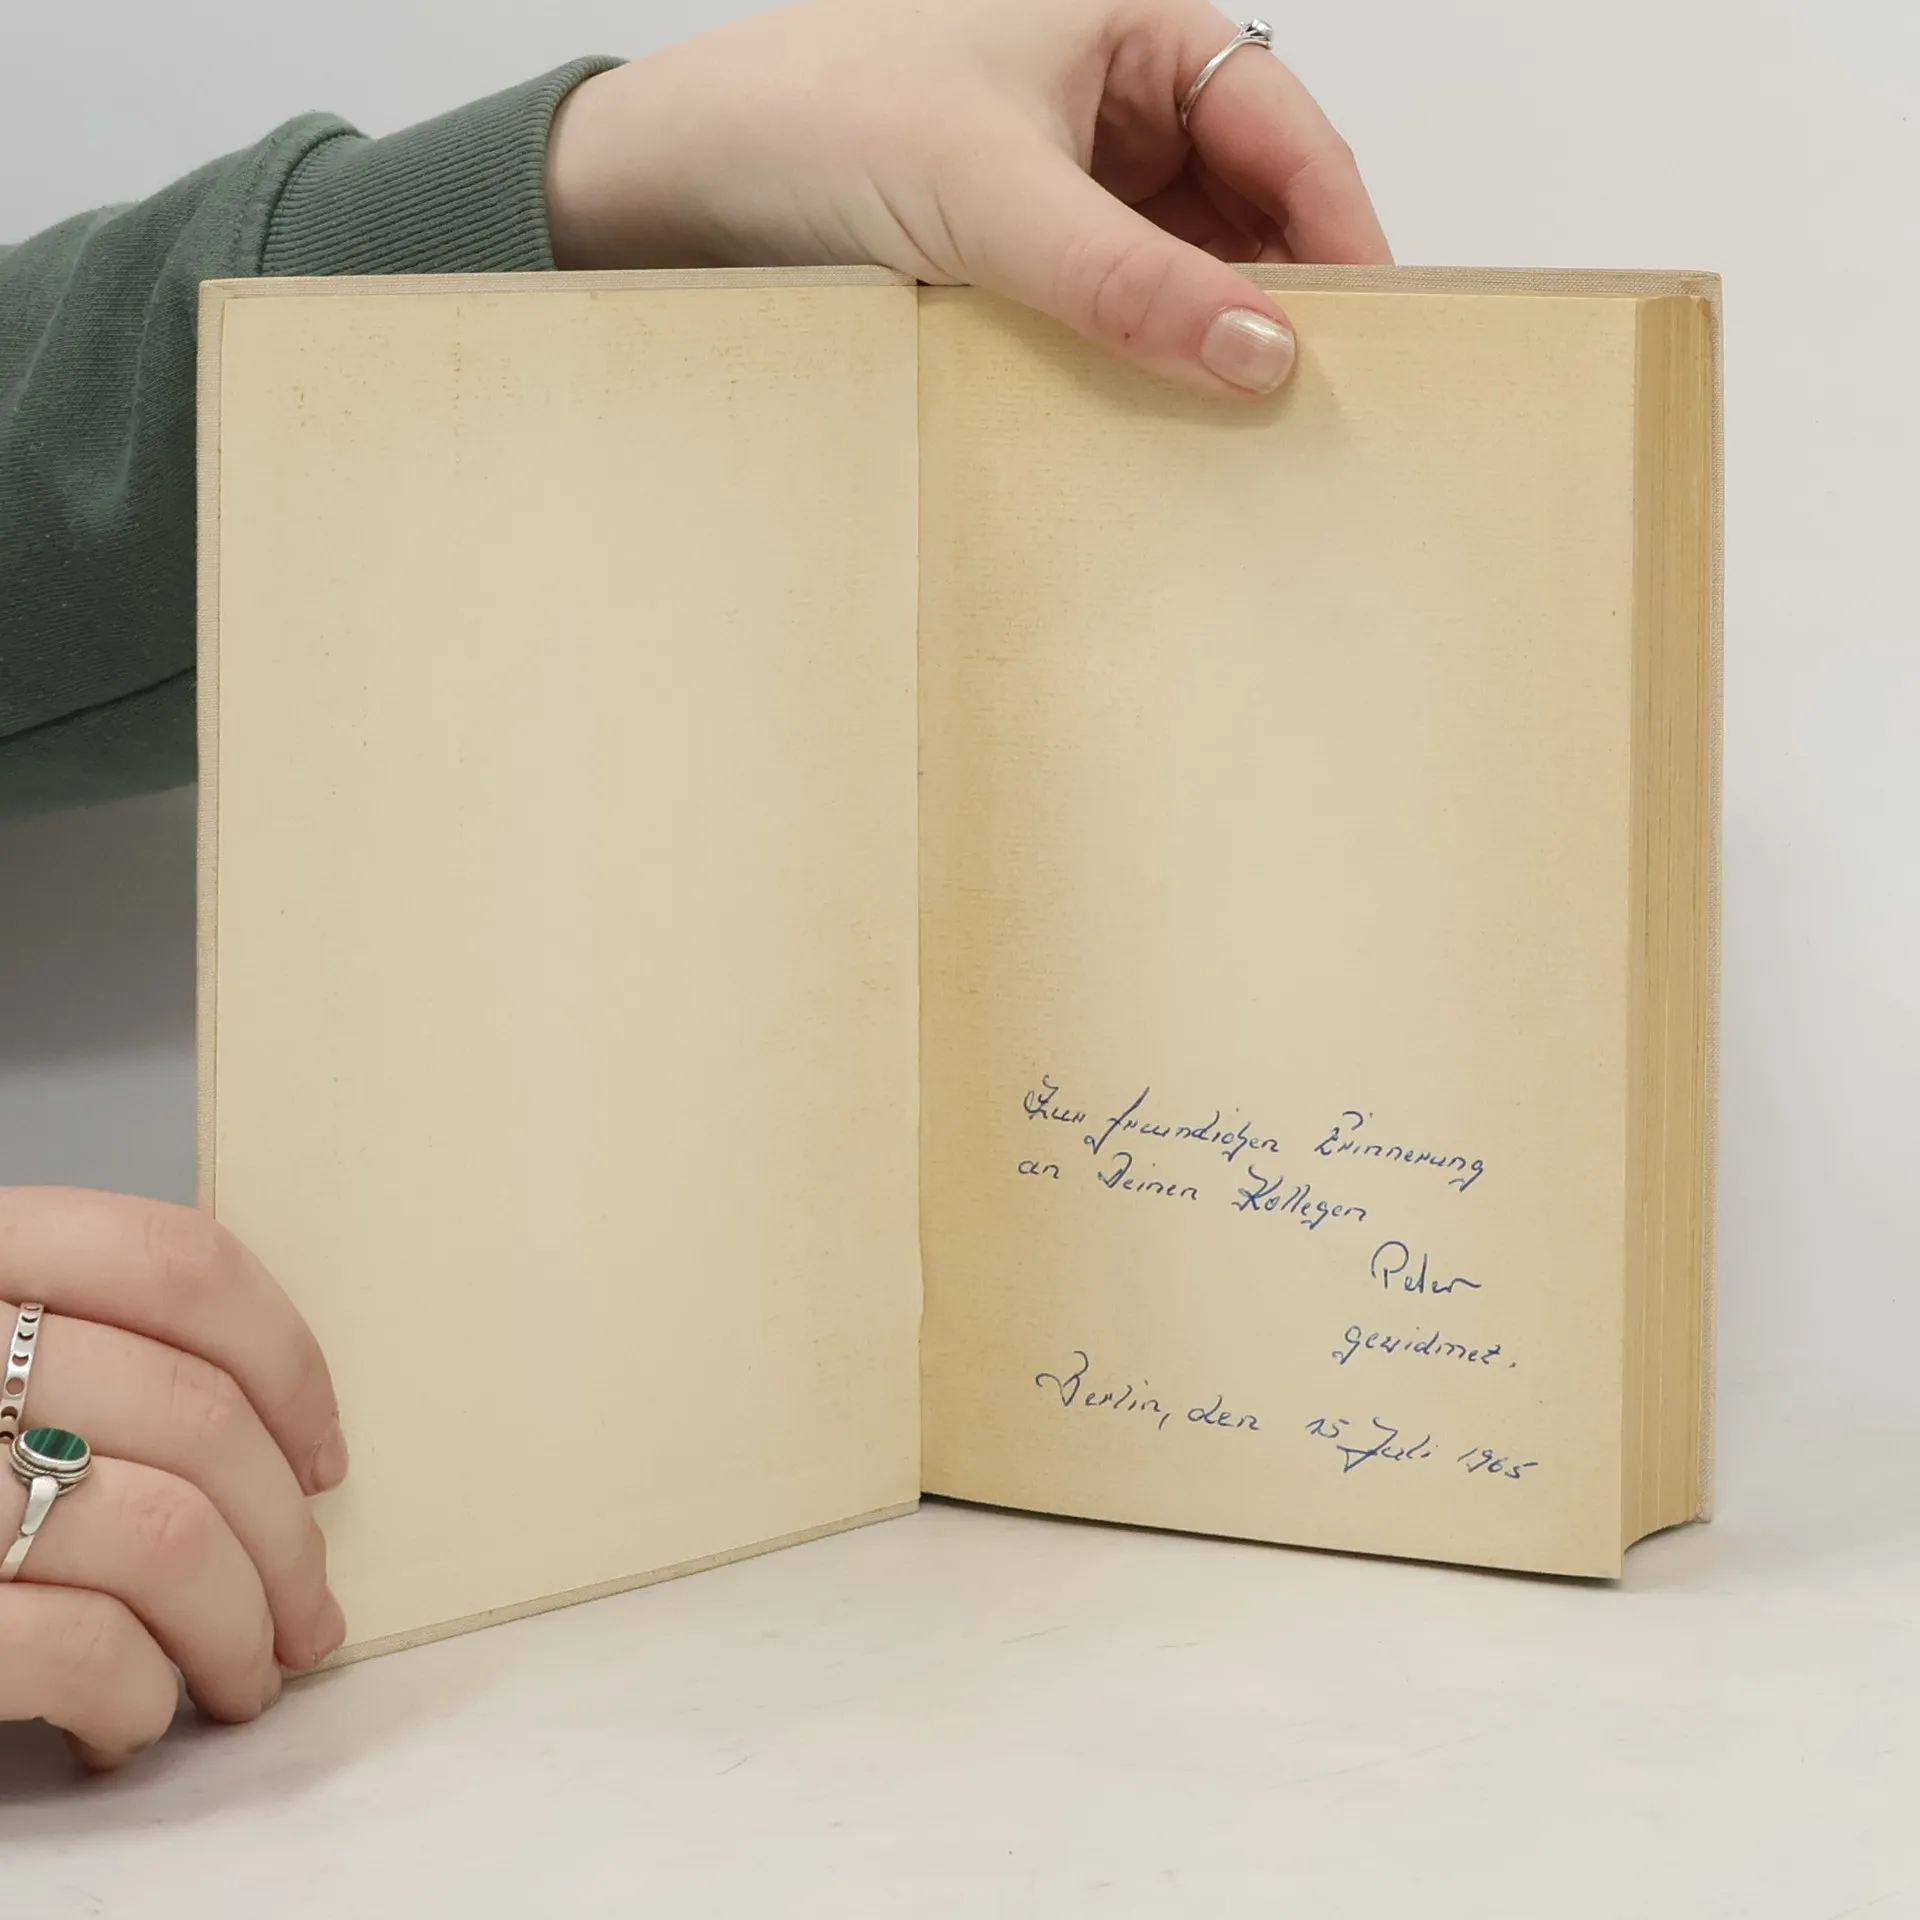 Zur freundichen Erinnerung
an Deinen Kollegen
Peter
gewidmet.
Berlin, den 15 Juli 1965